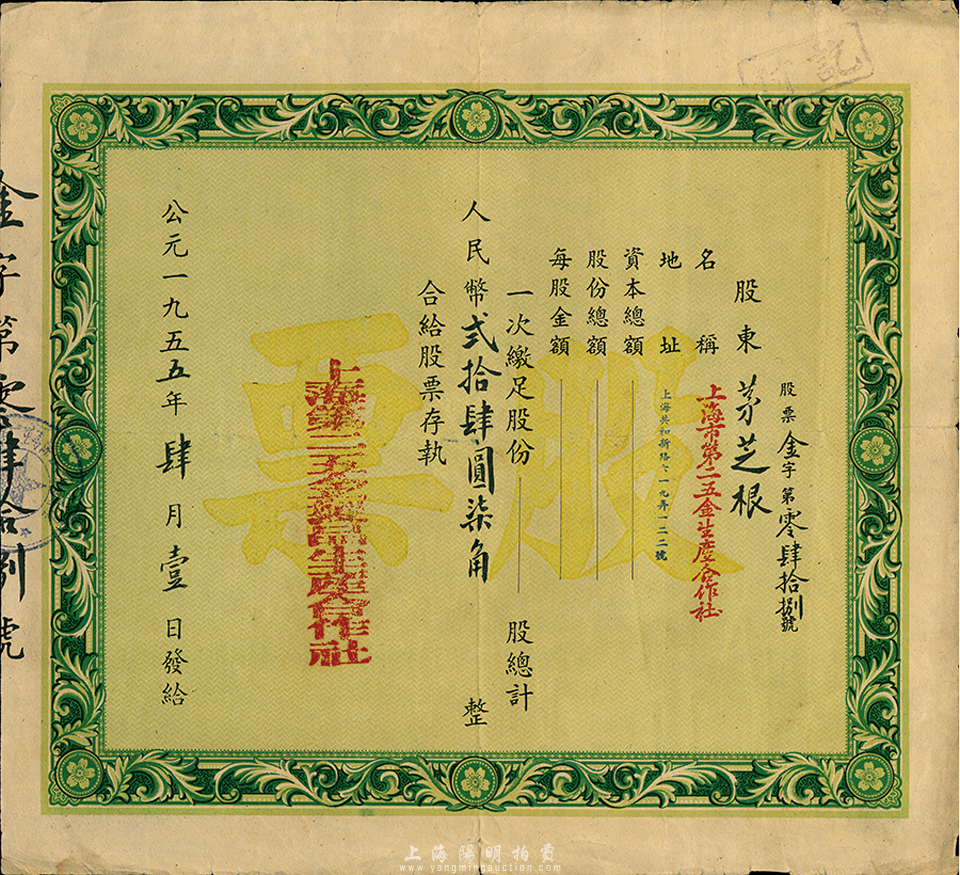 股票金字第零肆拾捌號
股東 茅芝根
名稱 上海市第二五金生產合作社
地址 上海共和新路六一九弄一二二號
資本總額
股份總額
每股金額
一次繳足股份 股總計
人民幣貳拾肆圓柒角 整
合給股票存執
公元一九五五年肆月壹日發給
股票
金字第零肆拾捌號
上海陽明拍賣
www.yangmingauction.com